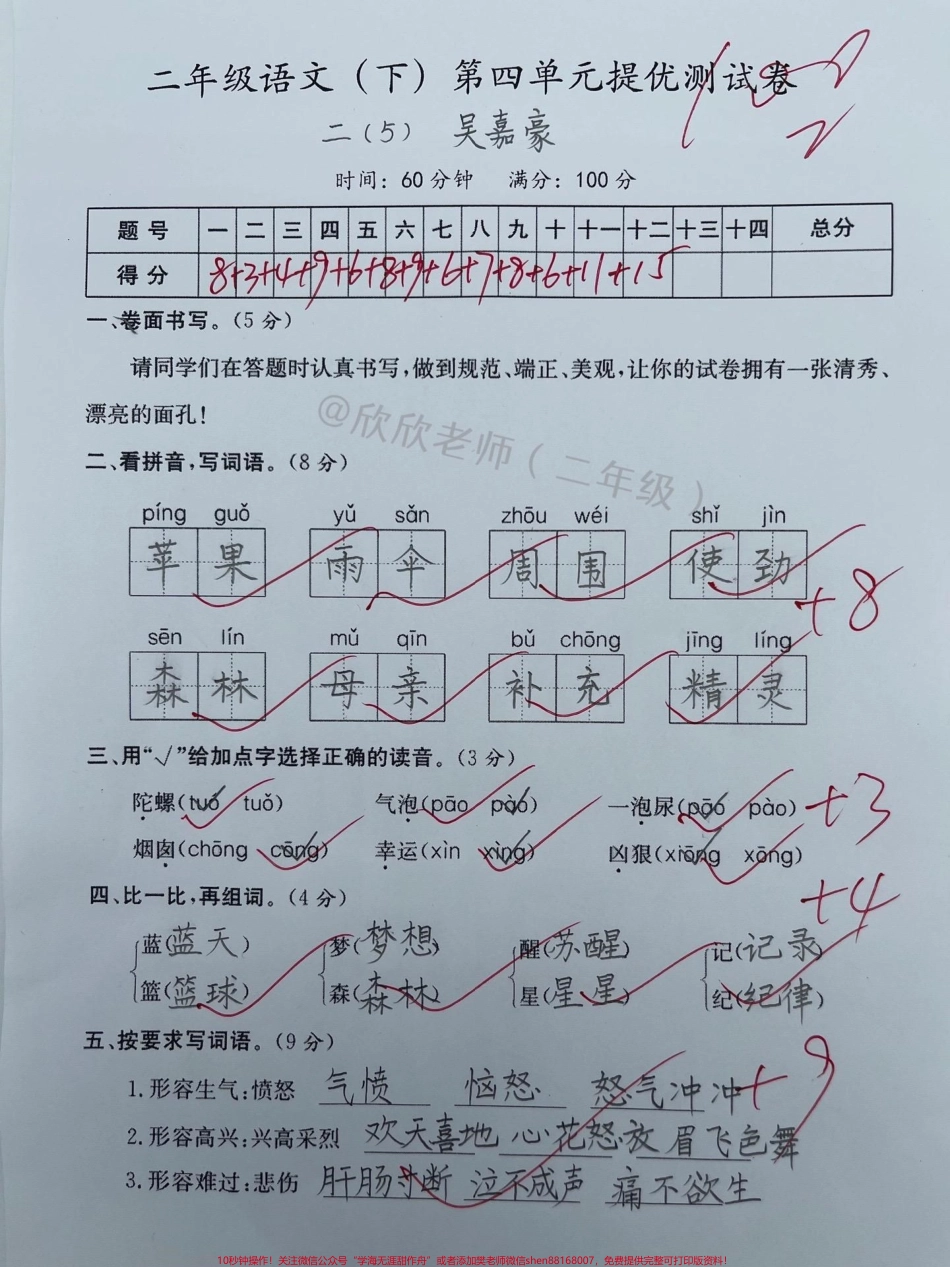 二年级语文（下）第四单元提优测试卷
二（5） 吴嘉豪
时间：60分钟 满分：100分
题号 一 二 三 四 五 六 七 八 九 十 十一 十二 十三 十四 总分
得分 8+3+4+9+6+8+9+6+7+8+6+11+15
一、卷面书写。（5分）
请同学们在答题时认真书写，做到规范、端正、美观，让你的试卷拥有一张清秀、
漂亮的面孔！
@欣欣老师（二年级）
二、看拼音，写词语。（8分）
píng guǒ yǔ sǎn zhōu wéi shǐ jìn
苹果 雨伞 周围 使劲
+8
sēn lín mǔ qīn bǔ chōng jīng líng
森林 母亲 补充 精灵
三、用“√”给加点字选择正确的读音。（3分）
陀螺（tuó√ tuǒ） 气泡（pāo pào√） 一泡尿（pāo√ pào） +3
烟囱（chōng cōng√） 幸运（xìn xìng√） 凶狠（xiōng√ xōng）
四、比一比，再组词。（4分） +4
蓝（蓝天） 梦（梦想） 醒（苏醒） 记（记录）
篮（篮球） 森（森林） 星（星星） 纪（纪律）
五、按要求写词语。（9分）
1.形容生气：愤怒 气愤 恼怒 怒气冲冲 +9
2.形容高兴：兴高采烈 欢天喜地 心花怒放 眉飞色舞
3.形容难过：悲伤 肝肠寸断 泣不成声 痛不欲生
10秒钟操作！关注微信公众号“学海无涯甜作舟”或者添加樊老师微信shen88168007，免费提供完整可打印版资料！